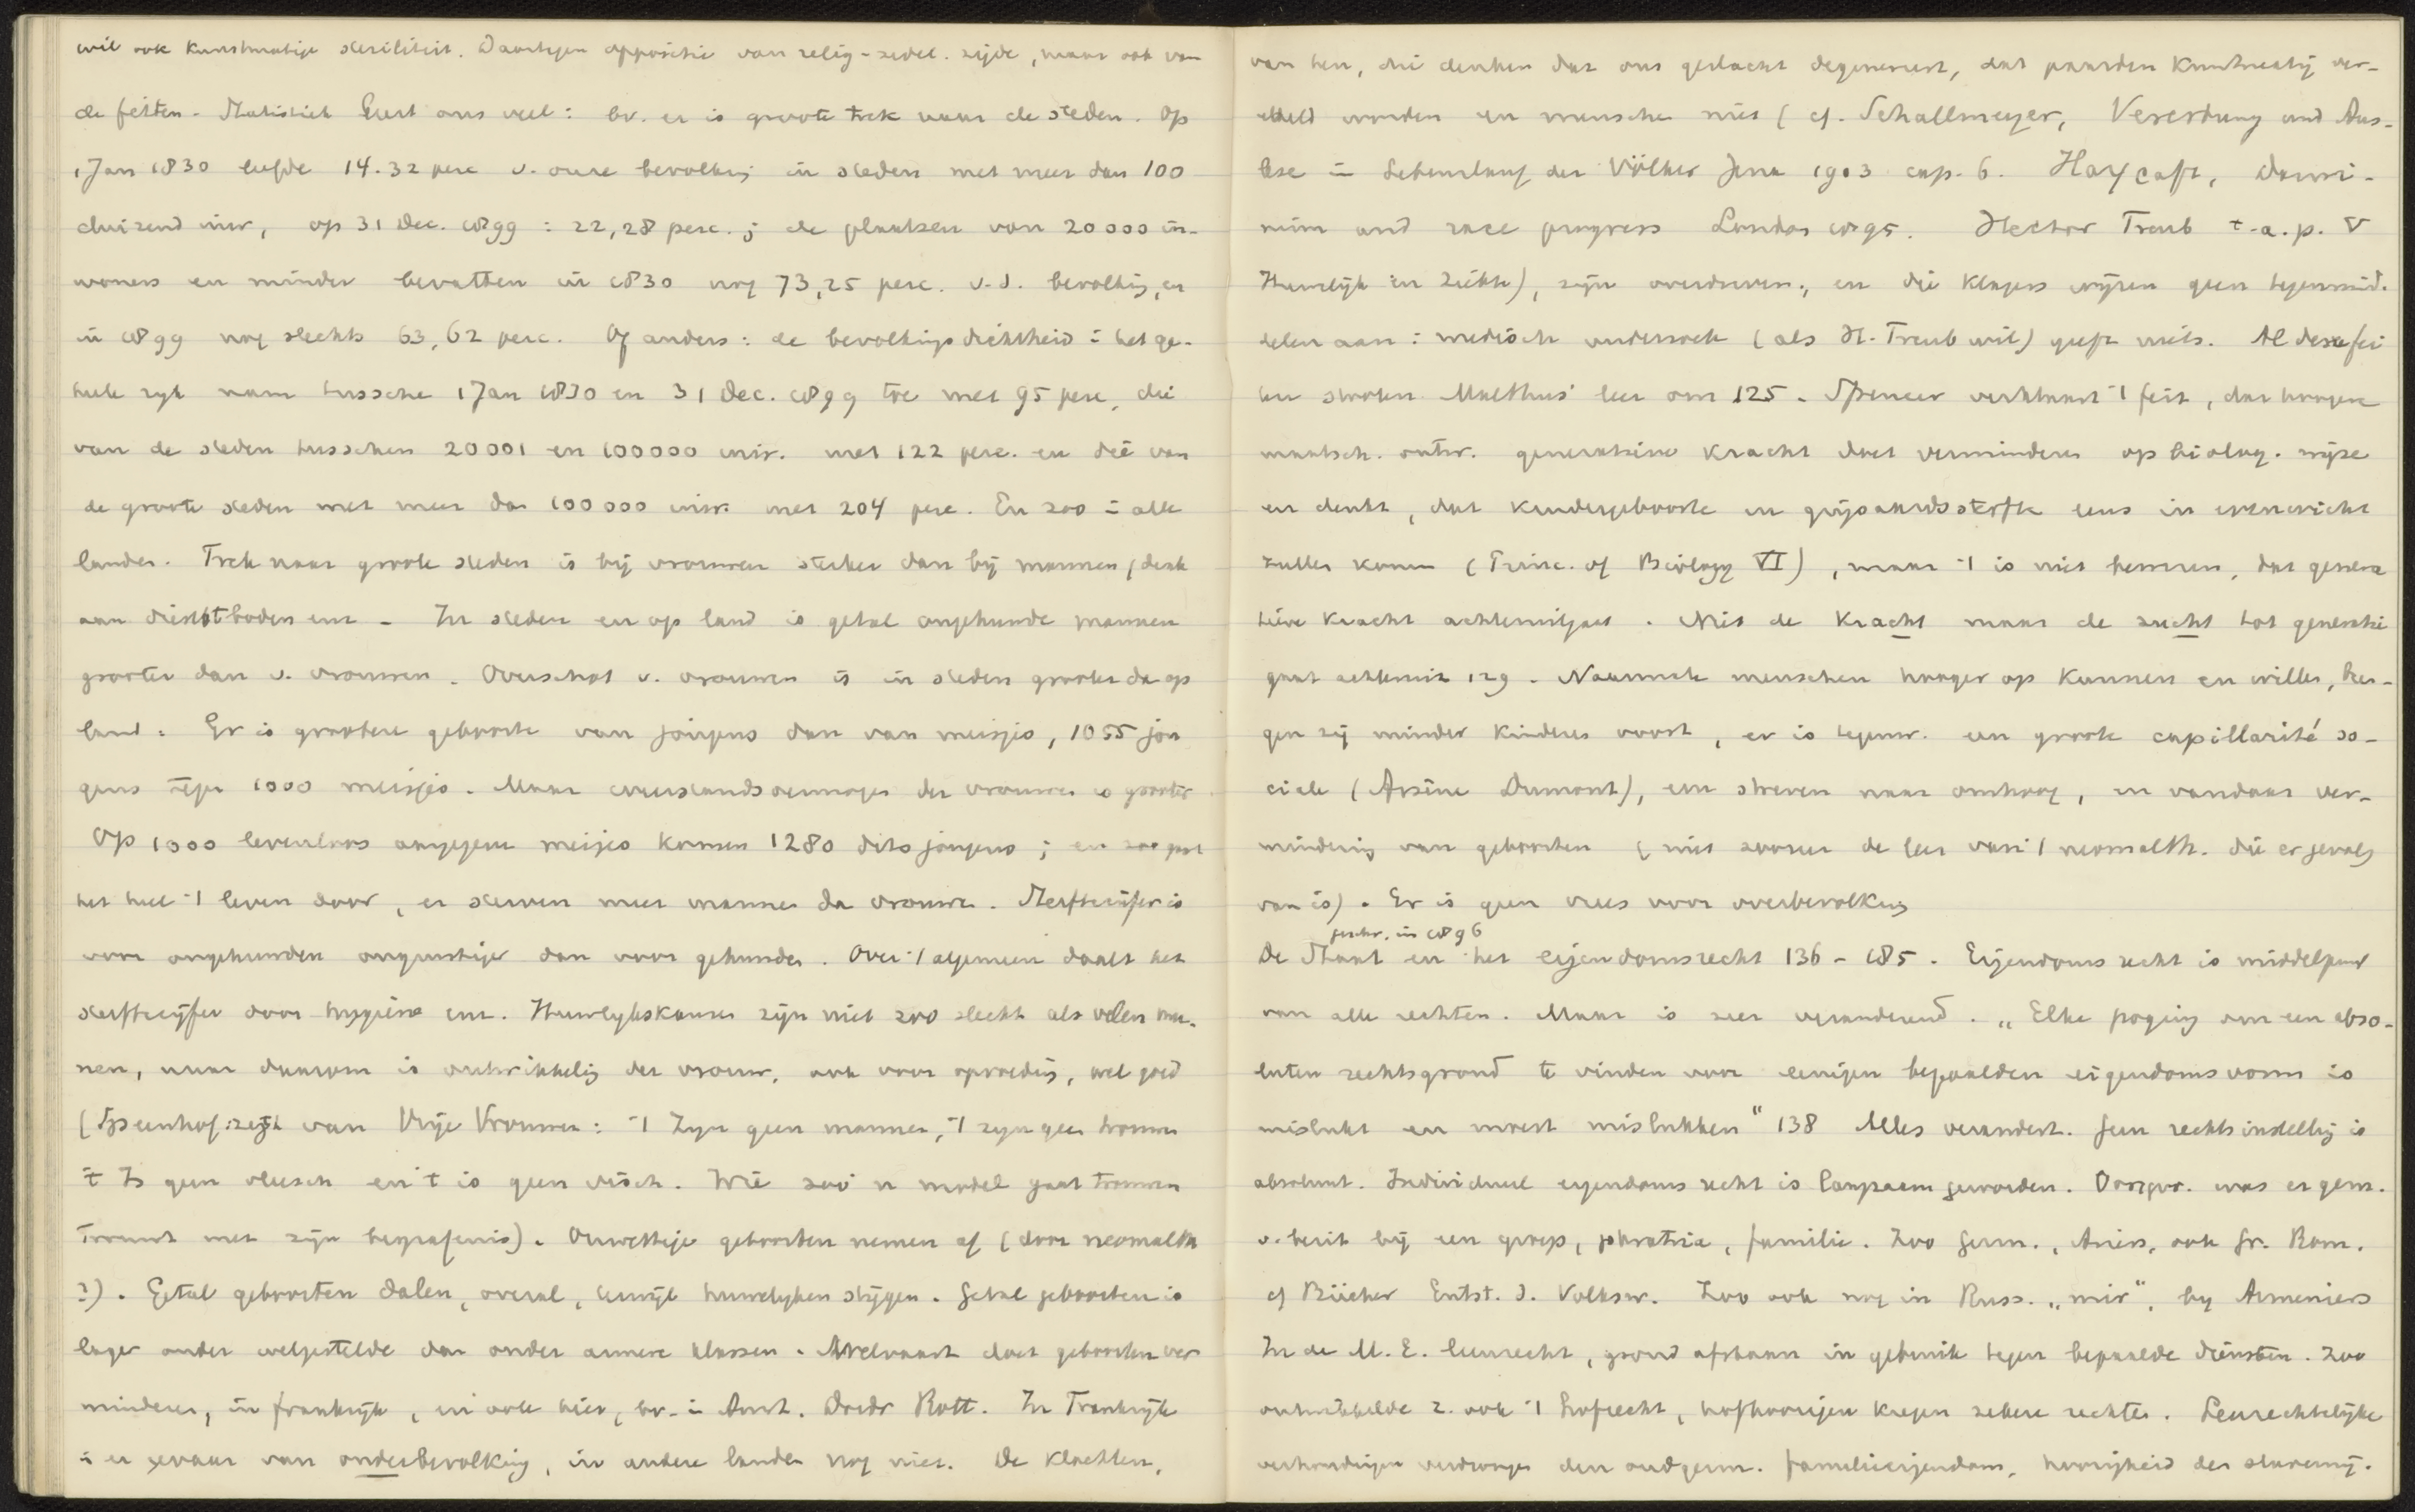 wil ook kunstmatige steriliteit. Daartegen oppositie van relig-zedel. zijde, maar ook van
de feiten. Statistiek leert ons veel: bv. er is groote trek naar de steden. Op
1 Jan 1830 leefde 14.32 perc v. onze bevolking in steden met meer dan 100
duizend inw, op 31 Dec. 1899: 22,28 perc.; de plaatsen van 20000 in-
woners en minder bevatten in 1830 nog 73,25 perc. v.d. bevolking, en
in 1899 nog slechts 63,62 perc. Of anders: de bevolkingsdichtheid i het ge-
heele ryk nam tussche 1 Jan 1830 en 31 Dec. 1899 toe met 95 perc, die
van de steden tusschen 20001 en 100000 inw. met 122 perc. en die van
de groote steden met meer dan 100000 inw. met 204 perc. En zoo i alle
landen. Trek naar groote steden is bij vrouwen sterker dan bij mannen, denk
aan dienstboden enz - In steden en op land is getal ongehuwde mannen
grooter dan v. vrouwen. Overschot v. vrouwen is in steden grooter dan op
land. Er is grootere geboorte van jongens dan van meisjes, 1055 jon
gens tegen 1000 meisjes. Maar weerstandsvermogen der vrouwen is grooter
Op 1000 levenloos aangegeven meisjes komen 1280 dito jongens; en zoo gaat
het heel 't leven door, er sterven meer mannen dan vrouwen. Sterftecijfer is
voor ongehuwden ongunstiger dan voor gehuwden. Over 't algemeen daalt het
sterftecijfer door hygiëne enz. Huwelykskansen zijn niet zoo slecht als velen mee-
nen, maar daarom is ontwikkeling der vrouw, ook voor opvoeding, wel goed
( zegt van Vrije Vrouwen: 't Zyn geen mannen, 't zyn geen vrouwen
't Is geen vleesch en 't is geen visch. Wie zoo'n model gaat trouwen
Trouwt met zijn begrafenis). Onwettige geboorten nemen af (door neomalth
?). Getal geboorten dalen, overal, terwijl huwelyken stijgen. Getal geboorten is
lager onder welgestelde dan onder armere klassen. Welvaart doet geboorten ver
minderen, in Frankrijk, en ook hier, bv. i Amst. Dordr Rott. In Frankrijk
is er gevaar van onderbevolking, in andere landen nog niet. De klachten,
van hen, die denken dat ons geslacht degenereert, dat paarden kunstmatig ver-
edeld worden en menschen niet (cf. Schallmeyer, Vererbung und Aus-
lese i Lebenslauf der Völker Jena 1903 cap. 6. Haycraft, Darwi-
nism and race progress London 1895. Hector Treub t.a.p. V
Huwelijk en ziekte), zijn overdreven, en die klagers wijzen geen tegenmid-
delen aan: medisch onderzoek (als H. Treub wil) geeft niets. Al deze fei
ten stooten Malthus' leer om 125. Spencer verklaart 't feit, dat hoogere
maatsch. ontw. generatieve kracht doet verminderen op biolog. wijze
en denkt, dat kindergeboorte en grijsaardssterfte eens in evenwicht
zullen komen (Princ. of Biology VI), maar 't is niet bewezen, dat genera
tieve kracht achteruitgaat. Niet de kracht maar de zucht tot generatie
gaat achteruit 129. Naarmate menschen hooger op kunnen en willen, bren-
gen zij minder kinderen voort, er is tegenw. een groote capillarité so-
ciale (Arsène Dumont), een streven naar omhoog, en vandaar ver-
mindering van geboorten (niet zoozeer de leer van 't neomalth. die er gevolg
van is). Er is geen vrees voor overbevolking
geschr. in 1896
De Staat en het eigendomsrecht 136 - 185. Eigendomsrecht is middelpunt
van alle rechten. Maar is zeer veranderend. „Elke poging om een abso-
luten rechtsgrond te vinden voor eenigen bepaalden eigendomsvorm is
mislukt en moest mislukken" 138 Alles verandert. Geen rechtsinstelling is
absoluut. Individueel eigendomsrecht is langzaam geworden. Oorspr. was er gem.
v. bezit bij een groep, phratria, familie. Zoo Germ., Ariers, ook Gr. Rom.
cf Bücher Entst. d. Volksw. Zoo ook nog in Russ. „mir", by Armeniers
In de M.E. leenrecht, grond afstaan in gebruik tegen bepaalde diensten. Zoo
ontwikkelde z. ook 't hofrecht, hofhoorigen kregen zekere rechten. Leenrechtelijke
verhoudingen verdrongen den oudgerm. familieeigendom, hoorigheid der slavernij.